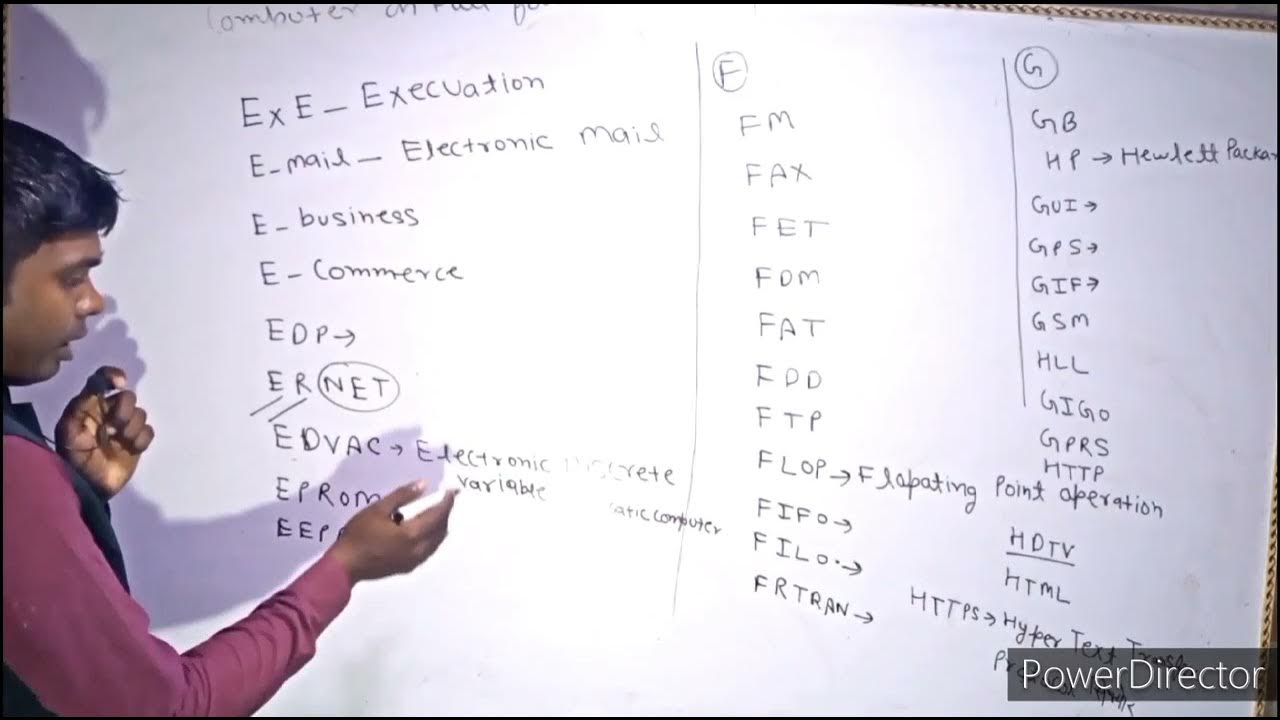 Computer
ExE - Execuation
E-mail - Electronic mail
E-business
E-Commerce
EDP →
ERNET
EDVAC → Electronic Discrete
variable
computer
EPROM
EEP
F
FM
FAX
FET
FDM
FAT
FDD
FTP
FLOP → Flapating Point operation
FIFO →
FILO. →
FRTRAN →
G
GB
HP → Hewlett Packar
GUI →
GPS →
GIF →
GSM
HLL
GIGO
GPRS
HTTP
HDTV
HTML
HTTPS → Hyper Text
PowerDirector